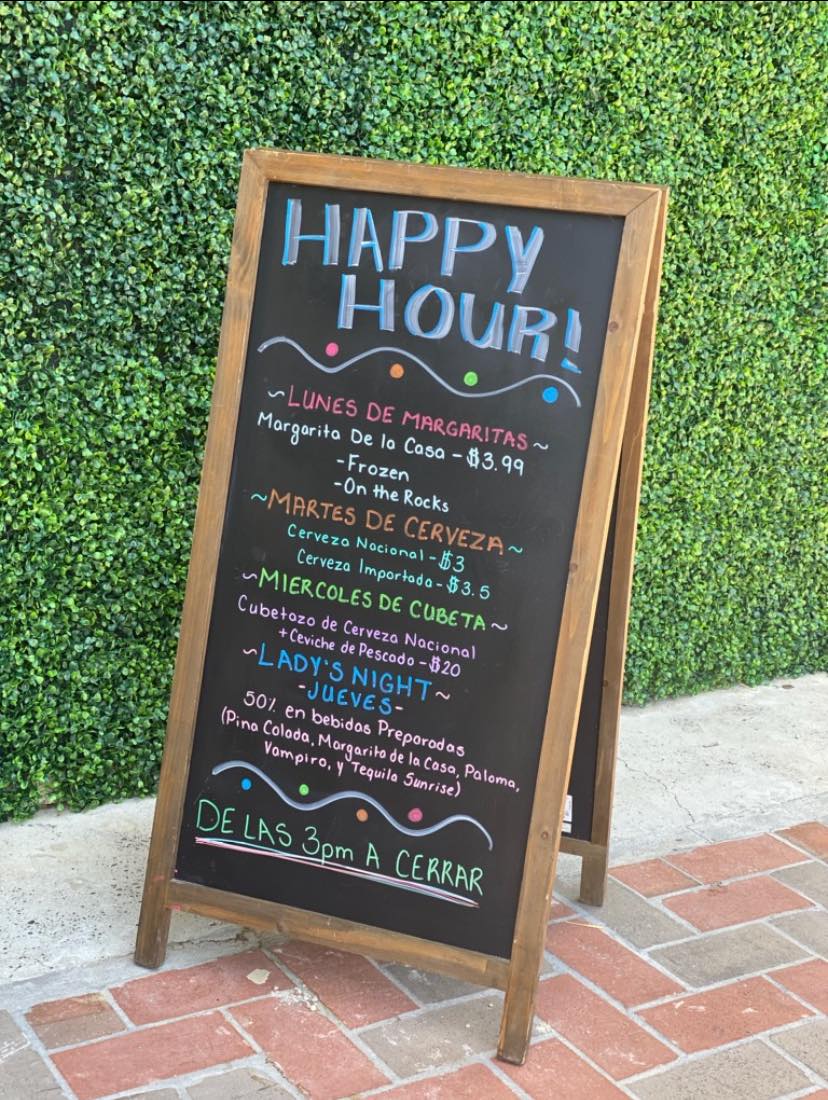 HAPPY
HOUR!
~LUNES DE MARGARITAS~
Margarita De la Casa - $3.99
-Frozen
-On the Rocks
~MARTES DE CERVEZA~
Cerveza Nacional - $3
Cerveza Importada - $3.5
~MIERCOLES DE CUBETA~
Cubetazo de Cerveza Nacional
+Ceviche de Pescado - $20
~LADY'S NIGHT~
-JUEVES-
50% en bebidas Preparadas
(Pina Colada, Margarita de la Casa, Paloma,
Vampiro, y Tequila Sunrise)
DE LAS 3pm A CERRAR